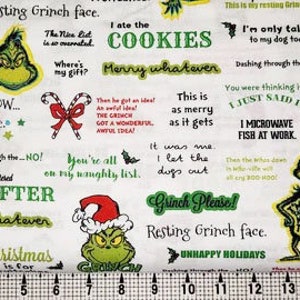 This is my resting Grinch
Resting Grinch face.
I ate the
COOKIES
The Nice List
is so overrated.
I'm only talk
to my dog to
Where's
my gift?
Merry whatever
Dashing through the
Then he got an idea!
An awful idea!
THE GRINCH
GOT A WONDERFUL,
AWFUL IDEA!
This is
as merry
as it gets
You were thinking i
I JUST SAID
I MICROWAVE
FISH AT WORK.
...NO!
You're all
on my naughty list.
It was me.
I let the
dogs out
Then the Whos down
in Who-ville will
all cry BOO-HOO!
Grinch Please!
Resting Grinch face.
whatever
Christmas
is for
GRINCH
UNHAPPY HOLIDAYS
5 6 7 8 9 10 11 12 13